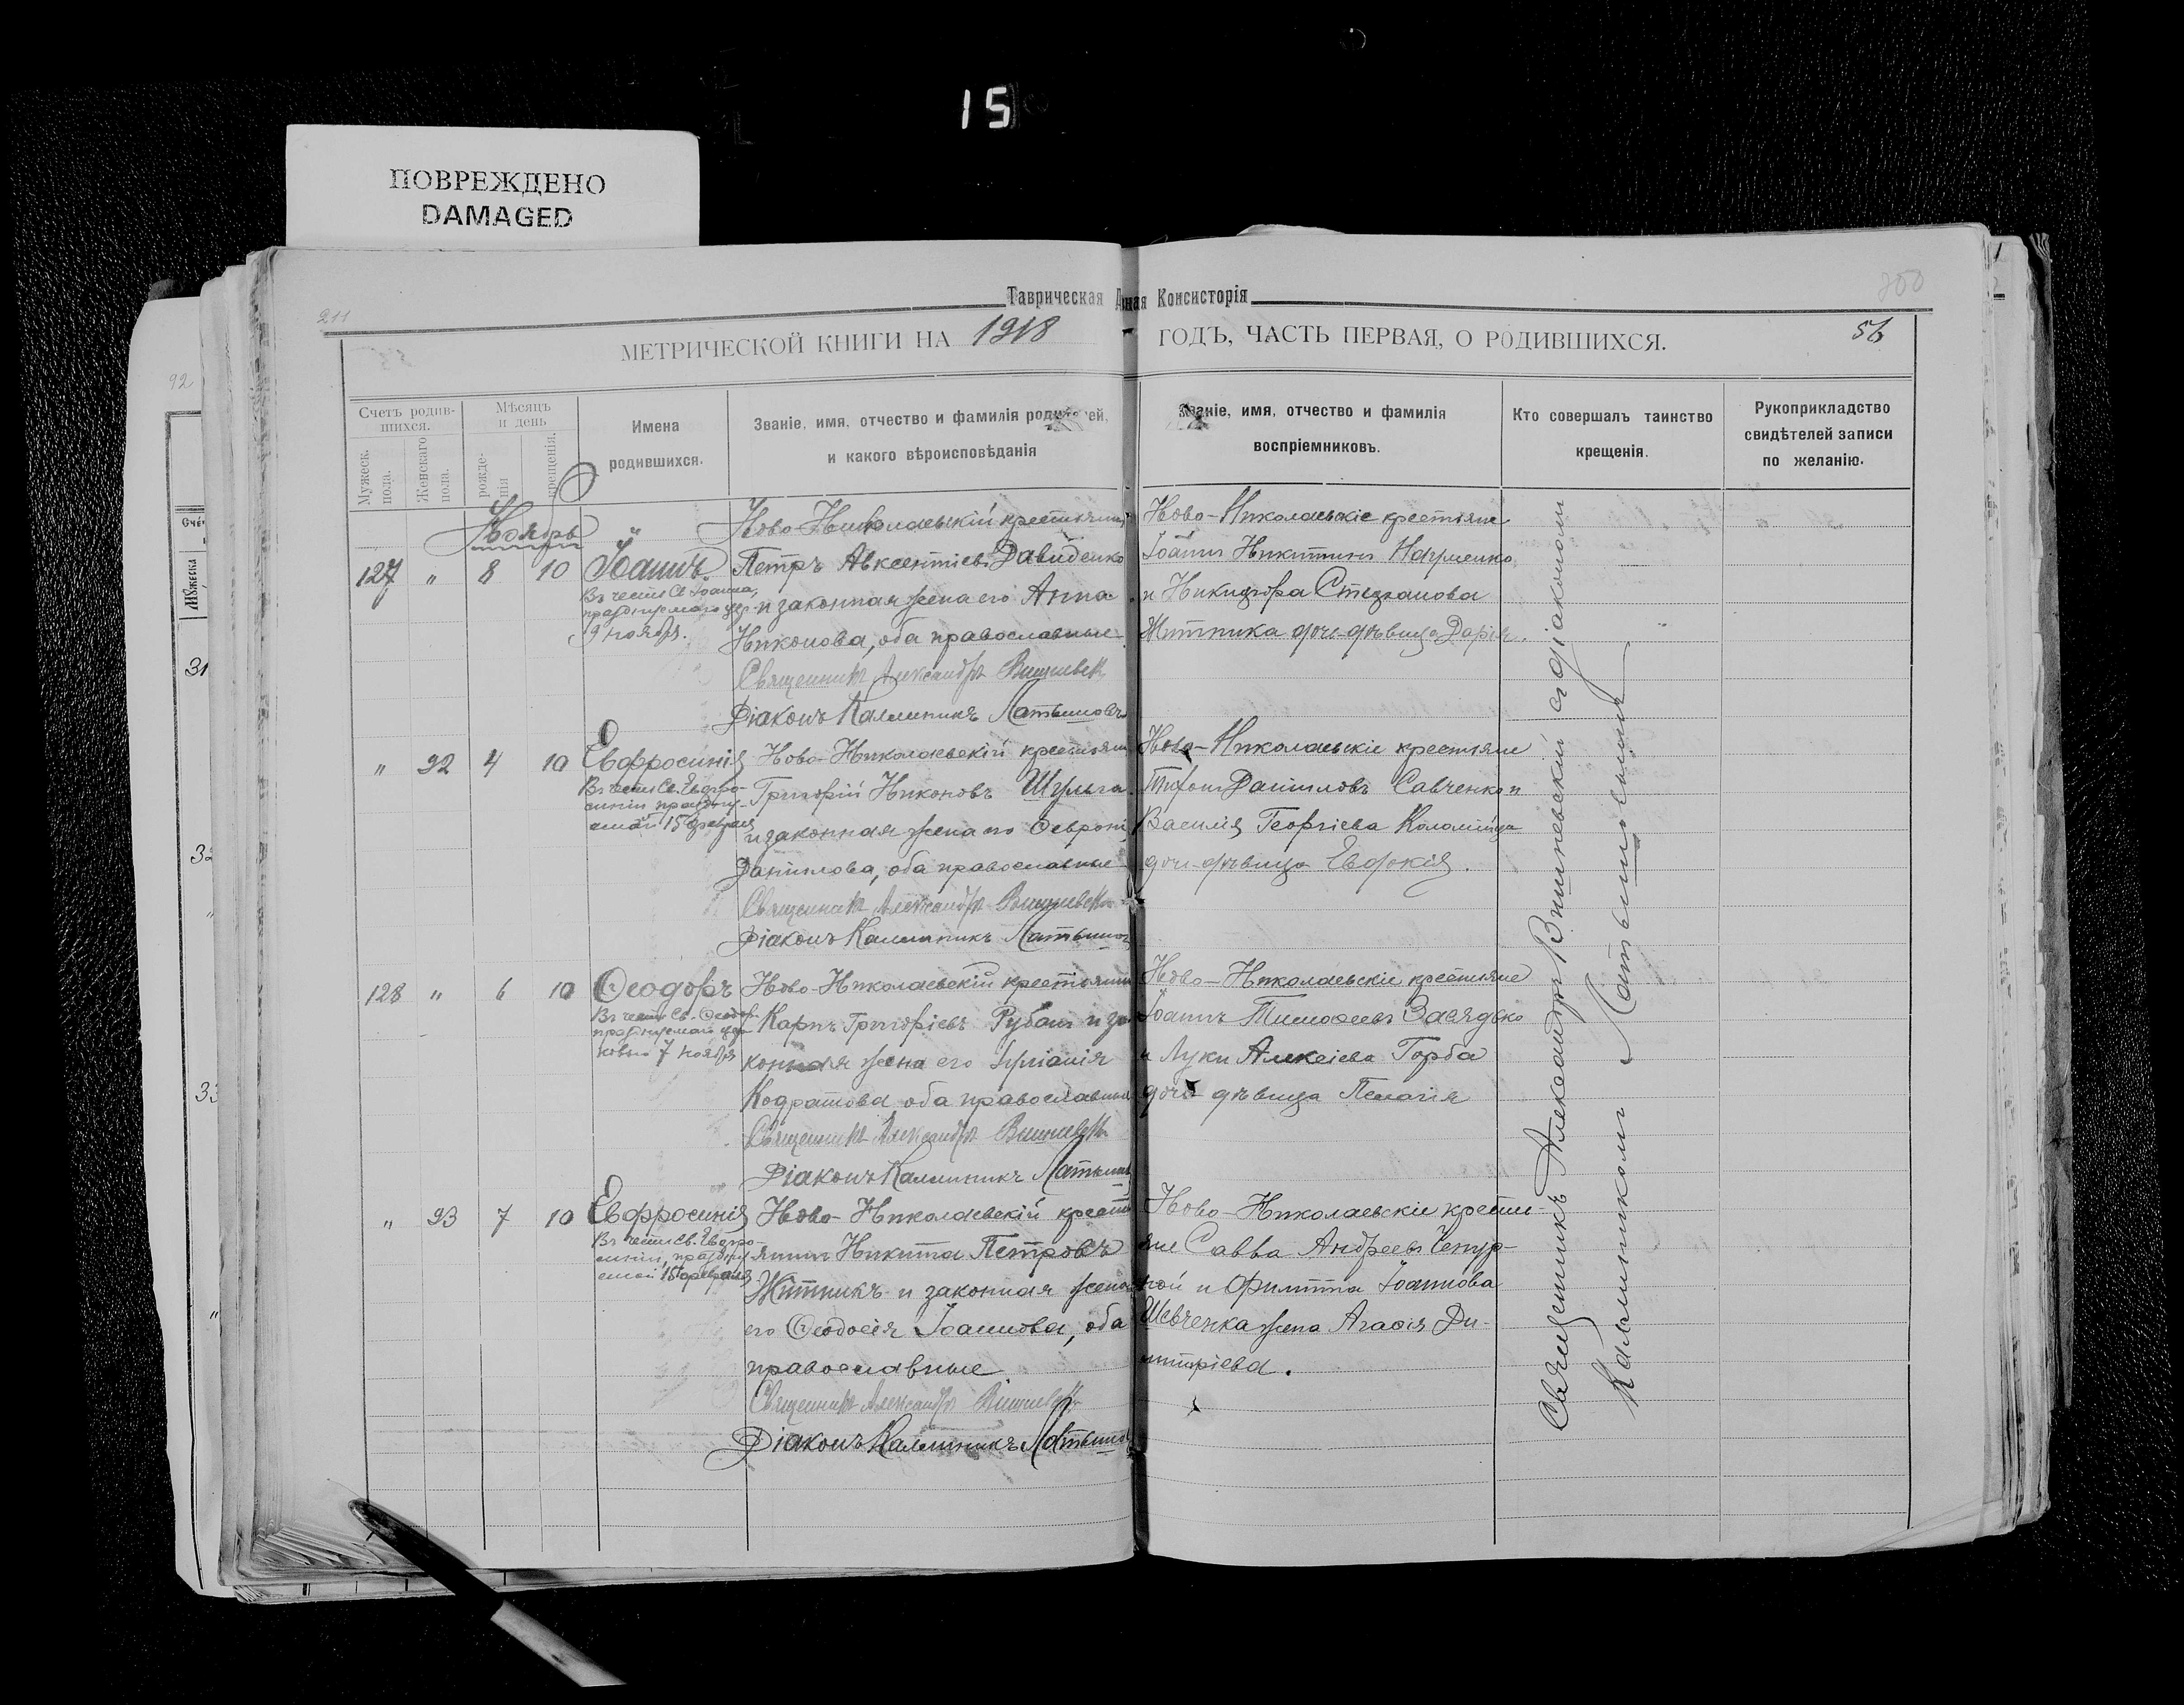 15
ПОВРЕЖДЕНО
DAMAGED
Таврическая
ная Консисторія
211
МЕТРИЧЕСКОЙ КНИГИ НА 1918
ГОДЪ, ЧАСТЬ ПЕРВАЯ, О РОДИВШИХСЯ.
56
92
Счетъ родив-
шихся.
Мужеск. пола.
Женскаго пола.
Мѣсяцъ
и день
рожде-
нія
крещенія.
Имена
родившихся.
Званіе, имя, отчество и фамилія родителей,
и какого вѣроисповѣданія
Званіе, имя, отчество и фамилія
воспріемниковъ.
Кто совершалъ таинство
крещенія.
Рукоприкладство
свидѣтелей записи
по желанію.
Ноябрь
127 " 8 10 Іоаннъ
Въ честь Св. Іоанна,
9 ноября.
Ново-Николаевскій крестьянинъ
Петръ Авксентіевъ Давиденко
и законная жена его Анна
Никонова, оба православные
Священникъ Александръ Вишневск
Діаконъ Каллиникъ Латышовъ
Ново-Николаевскіе крестьяне
Іоаннъ Никитинъ Науменко
и Никифора Стефанова
Житника дочь-дѣвица Дарія.
" 92 4 10 Евфросинія
Въ честь Св. Евфро-
синіи празднu-
емой 15 февраля
Ново-Николаевскій крестьянин
Григорій Никоновъ Шульга
и законная жена его Ѳевроні
Даніилова, оба православные
Священникъ Александръ Вишневск
Діаконъ Каллиникъ Латышов
Ново-Николаевскіе крестьяне
Тихонъ Даніиловъ Савченко и
Василія Георгіева Коломійца
дочь-дѣвица Евдокія.
128 " 6 10 Ѳеодоръ
Въ честь Св. Ѳеодор
7 ноября
Ново-Николаевскій крестьянин
Карпъ Григоріевъ Рубанъ и за-
конная жена его Іуліанія
Кодратова оба православные
Священникъ Александръ Вишневск
Діаконъ Каллиникъ Латыш
Ново-Николаевскіе крестьяне
Іоаннъ Тимоѳеевъ Засядько
и Луки Алексіева Горба
дочь дѣвица Пелагія
" 93 7 10 Евфросинія
Въ честь Св. Евфро-
синіи, праздну-
емой 15 февраля
Ново-Николаевскій крестъ
янинъ Никита Петровъ
Житникъ и законная жена
его Ѳеодосія Іоаннова, оба
православные
Священникъ Александръ Вишневск
Діаконъ Каллиникъ Латышов
Ново-Николаевскіе кресть-
яне Савва Андреевъ Чепур-
ной и Филиппа Іоаннова
Шевченка жена Агаѳія Ди-
митріева.
Священникъ Александръ Вишневскій съ діакономъ
Каллиникомъ Латышовымъ
31
32
33